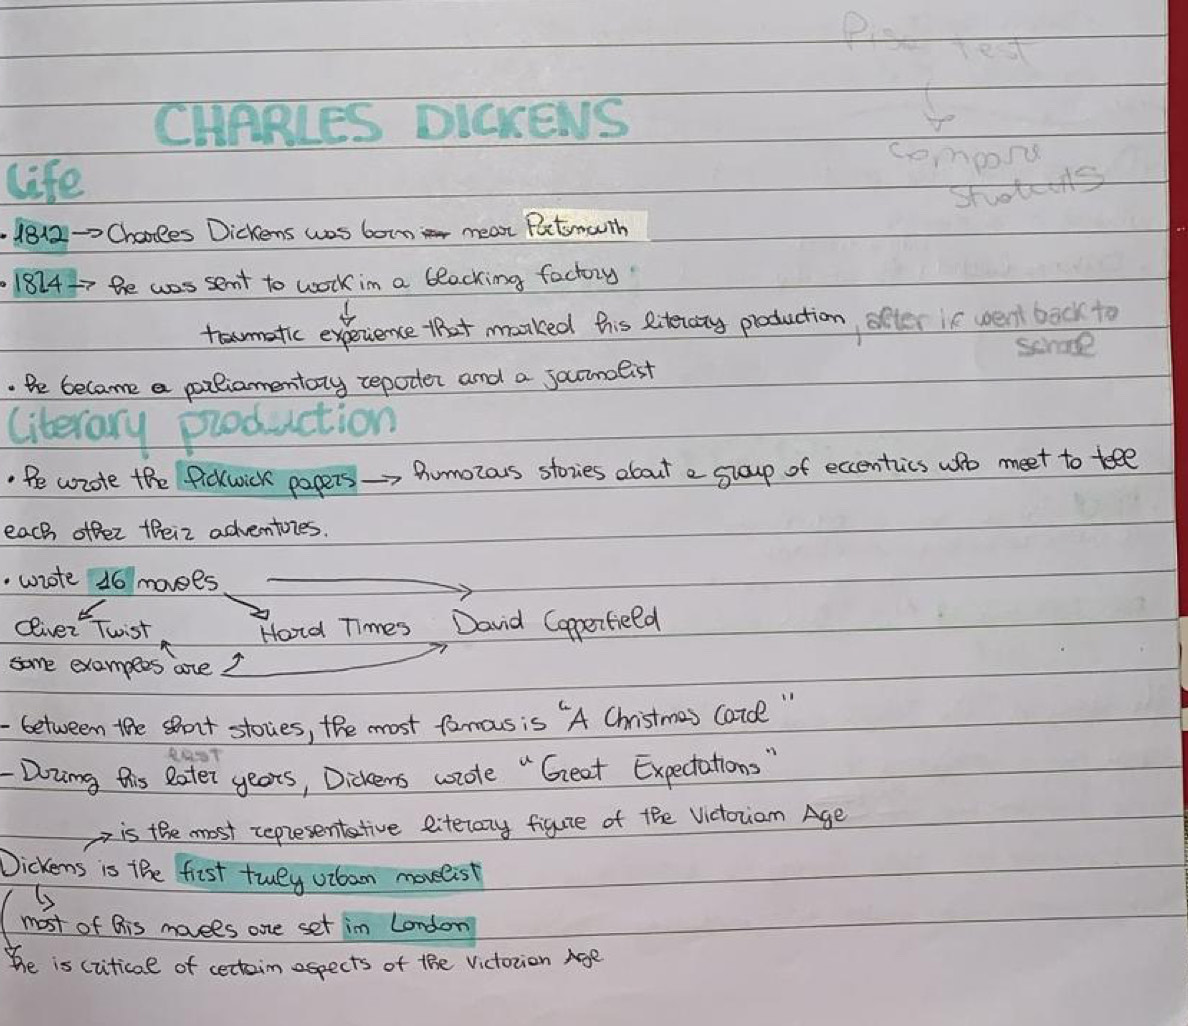 Pisa test
↓
compare
students
CHARLES DICKENS
life
• 1812 → Charles Dickens was born near Portsmouth
• 1824 → he was sent to work in a blacking factory
↓
traumatic experience that marked his literary production, after it went back to
school
• he became a parliamentary reporter and a journalist
literary production
• he wrote the Pickwick papers → humorous stories about a group of eccentrics who meet to tell
each other their adventures.
• wrote 16 novels
Oliver Twist Hard Times David Copperfield
some examples are
- between the short stories, the most famous is "A Christmas Carol"
last
- During his later years, Dickens wrote "Great Expectations"
→ is the most representative literary figure of the Victorian Age
Dickens is the first truly urban novelist
↳ most of his novels are set in London
he is critical of certain aspects of the Victorian Age